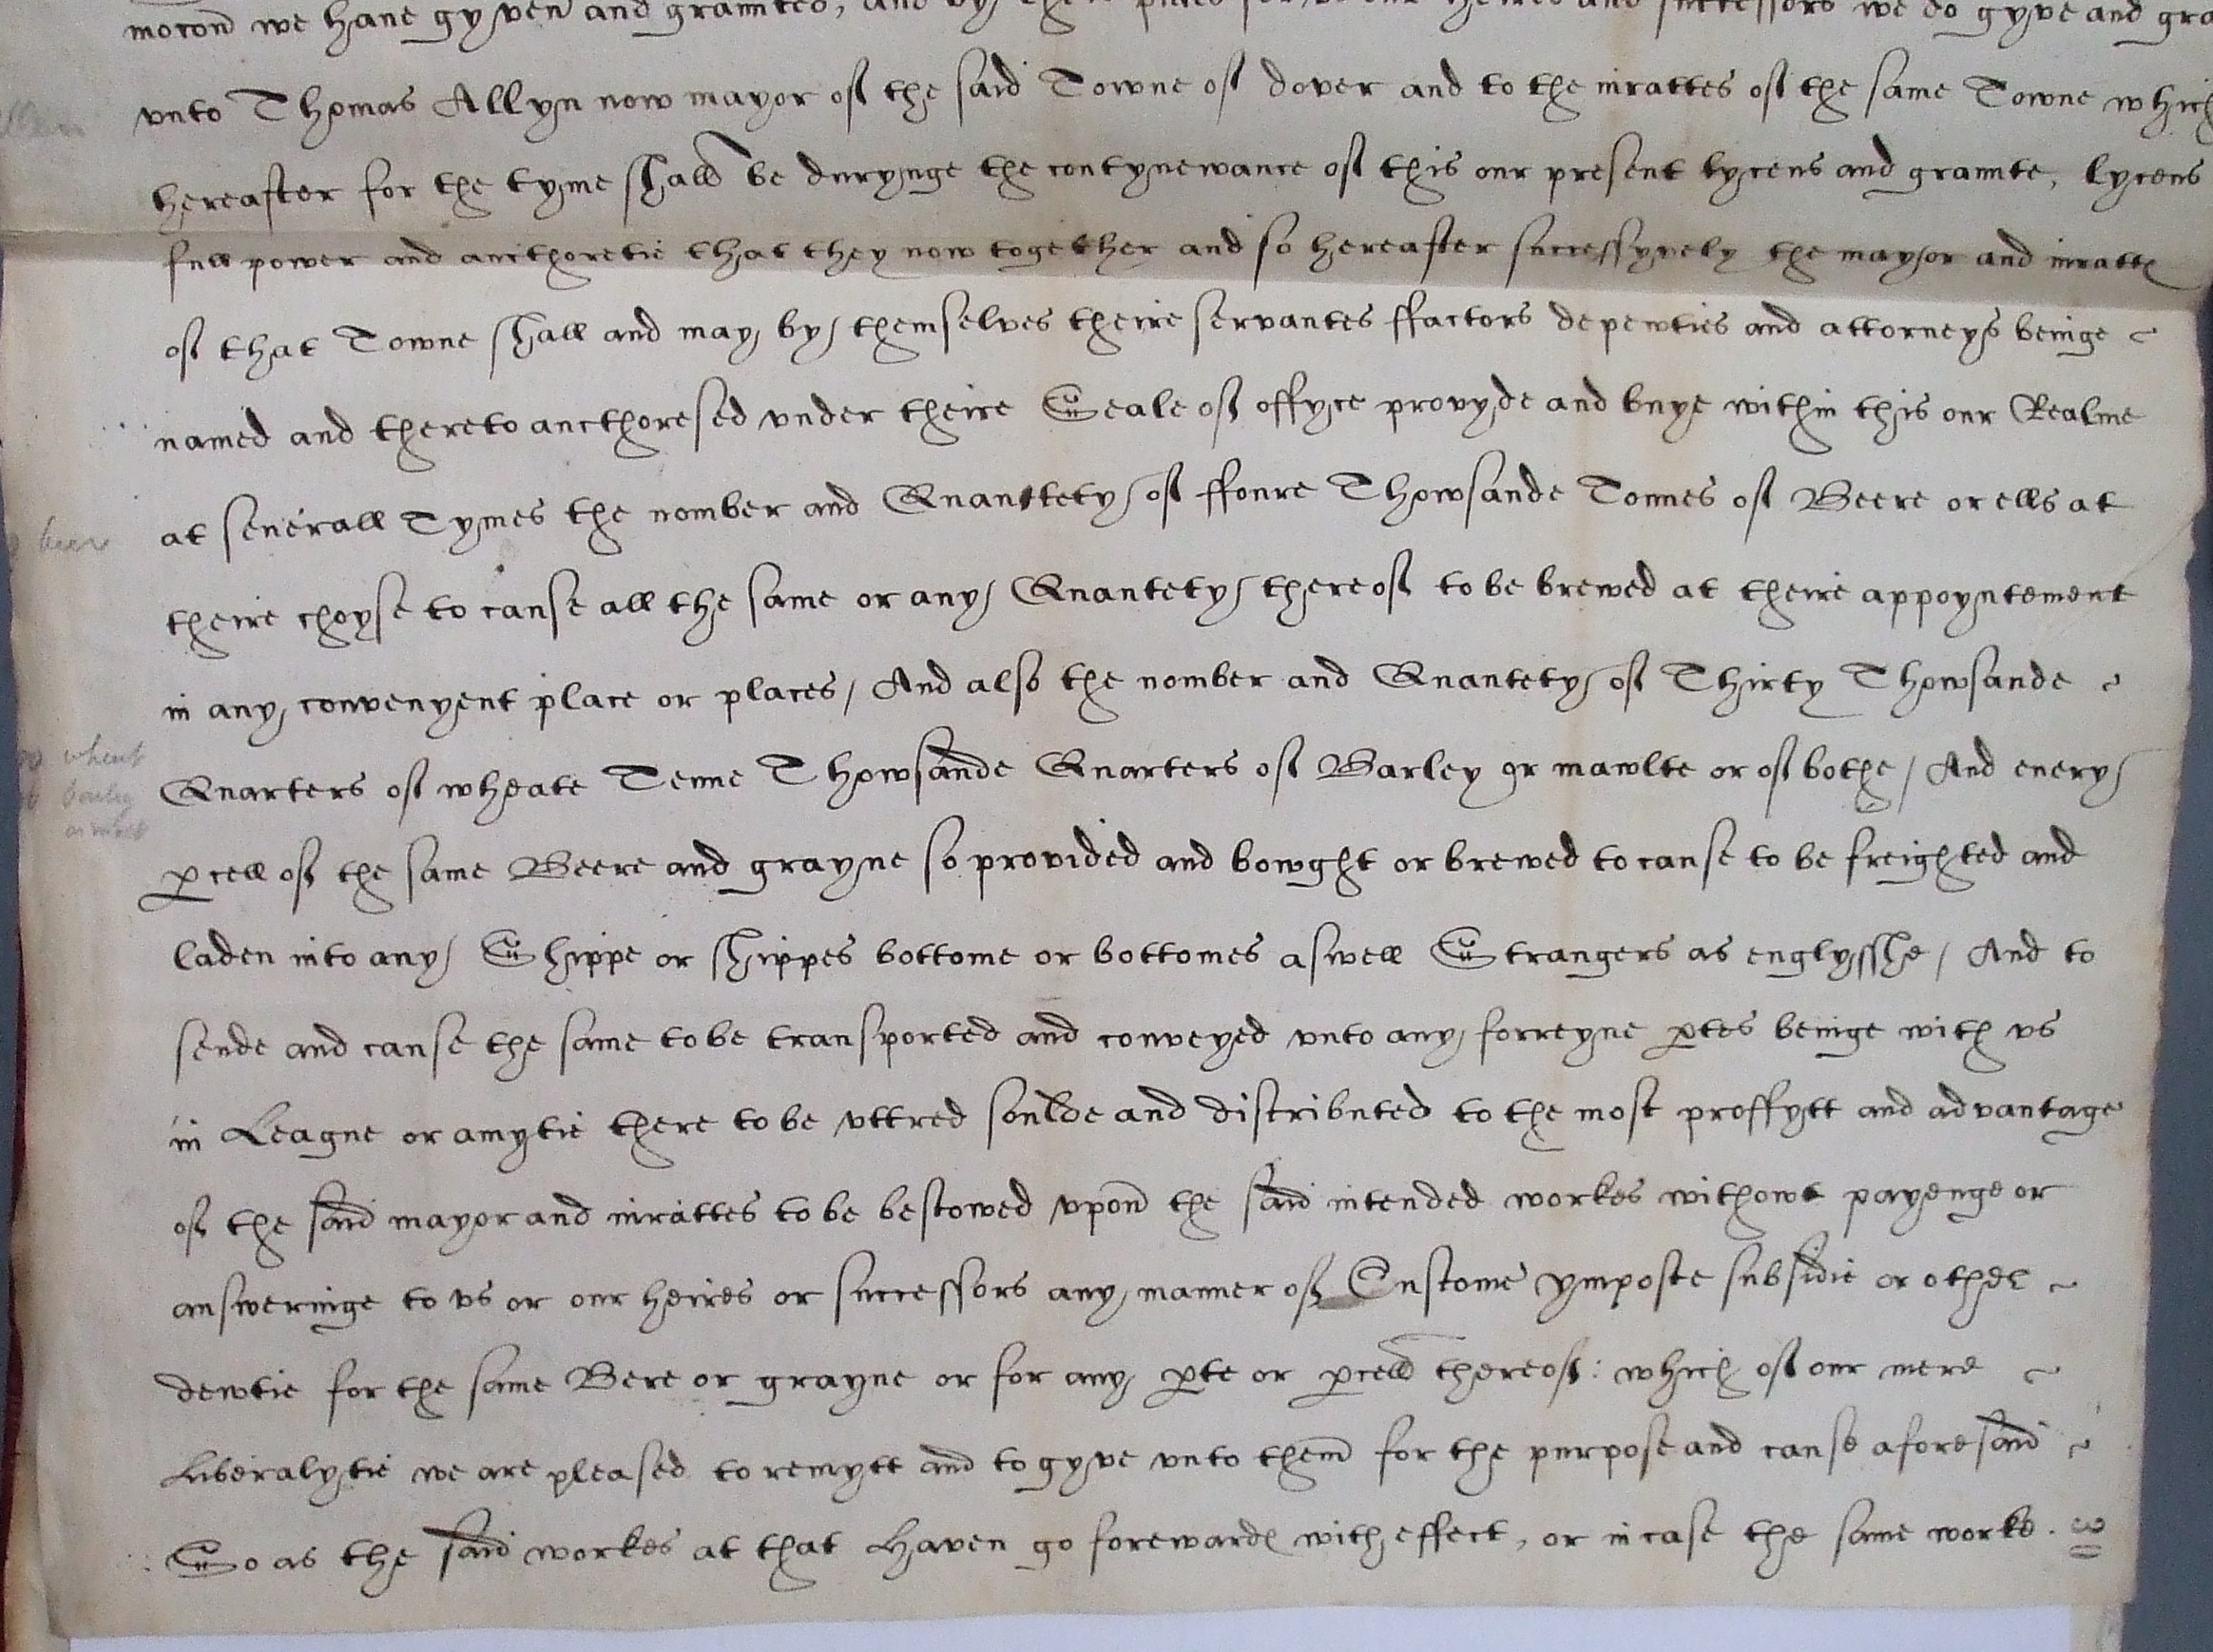 mocon we haue gyven and graunted, and by these pntes for us our heires and successors we do gyve and gra
vnto Thomas Allyn now mayor of the said Towne of dover and to the iurattes of the same Towne which
hereafter for the tyme shall be durynge the contynewance of this our present lycens and graunte, lycens
full power and aucthoretie that they now together and so hereafter successyvely the mayor and iuratts
of that Towne shall and may by themselves theire servantes ffactors depewties and attorneys beinge
named and thereto aucthoresed vnder theire Seale of offyce provyde and buye within this our Realme
at seuerall Tymes the nomber and Quantety of ffoure Thowsande Tonnes of Beere or ells at
theire choyse to cause all the same or any Quantety thereof to be brewed at theire appoyntement
in any convenyent place or places / And also the nomber and Quantety of Thirty Thowsande
Quarters of wheate Tenne Thowsande Quarters of Barley or mawlte or of bothe / And euery
pcell of the same Beere and grayne so provided and bowght or brewed to cause to be freighted and
laden into any Shippe or shippes bottome or bottomes aswell Strangers as englysshe / And to
sende and cause the same to be transported and conveyed vnto any forreyne ptes beinge with vs
in League or amytie there to be vttred soulde and distributed to the most proffytt and advantage
of the said mayor and iurattes to be bestowed vpon the said intended workes withowt payenge or
answeringe to vs or our heires or successors any manner of Custome ymposte subsidie or other
dewtie for the same Bere or grayne or for any pte or pcell thereof: which of our mere
Liberalytie we are pleased to remytt and to gyve vnto them for the purpose and cause aforesaid
So as the said workes at that Haven go forewarde with effect, or in case the same worke.
beere
wheat
barley
or malt